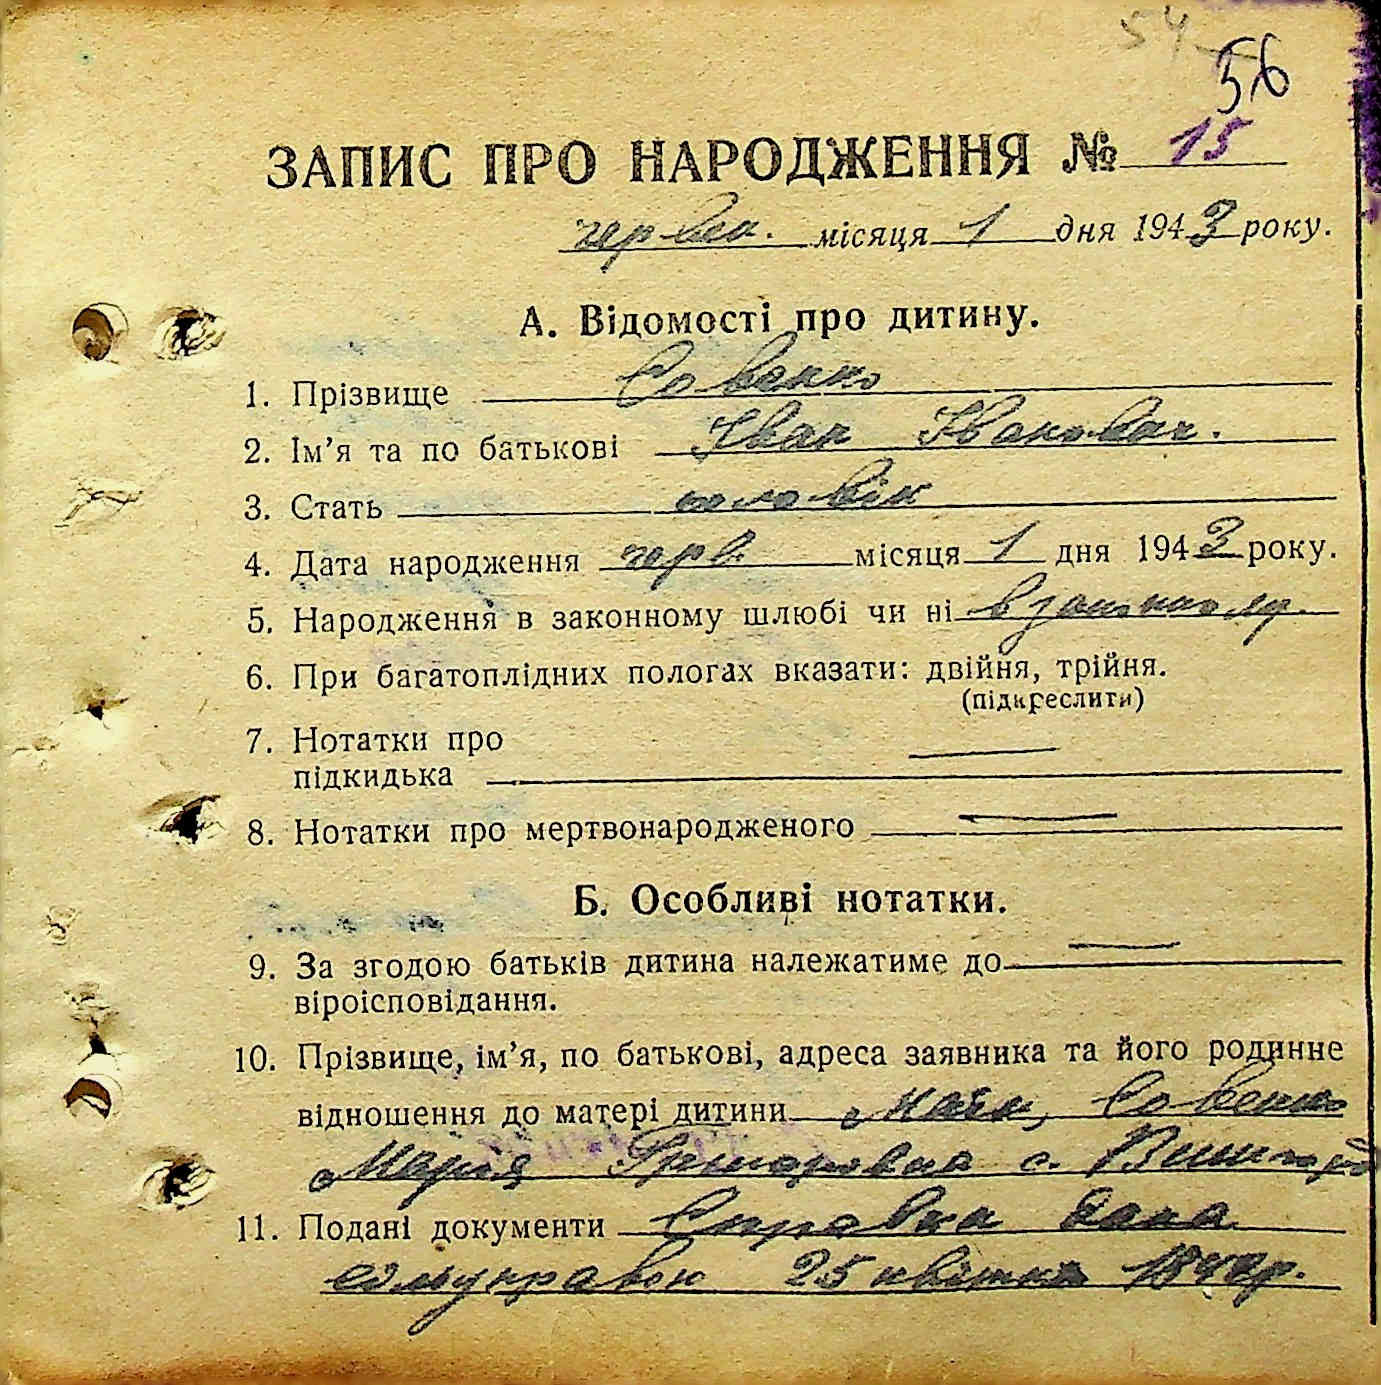 54
56
ЗАПИС ПРО НАРОДЖЕННЯ № 15
червен. місяця 1 дня 1943 року.
А. Відомості про дитину.
1. Прізвище Совенко
2. Ім'я та по батькові Іван Іванович.
3. Стать чоловік
4. Дата народження черв. місяця 1 дня 1943 року.
5. Народження в законному шлюбі чи ні в законному.
6. При багатоплідних пологах вказати: двійня, трійня.
(підкреслити)
7. Нотатки про
підкидька
8. Нотатки про мертвонародженого
Б. Особливі нотатки.
9. За згодою батьків дитина належатиме до
віроісповідання.
10. Прізвище, ім'я, по батькові, адреса заявника та його родинне
відношення до матері дитини Мати, Совенко
Марія Григоровна с. Вишгород
11. Подані документи Справка дана
сільуправою 25 квітня